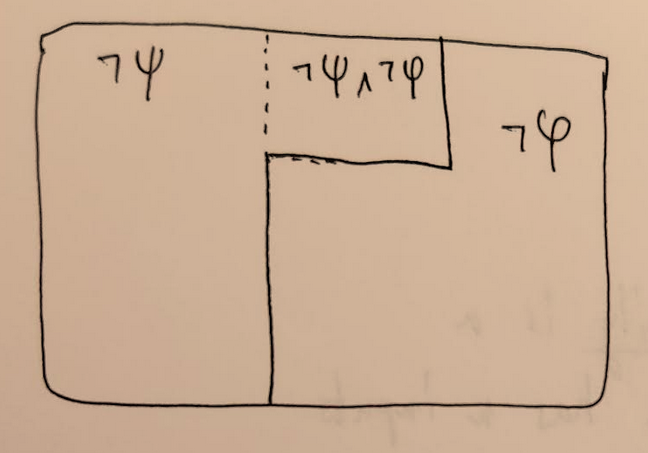 ¬ψ
¬ψ∧¬φ
¬φ